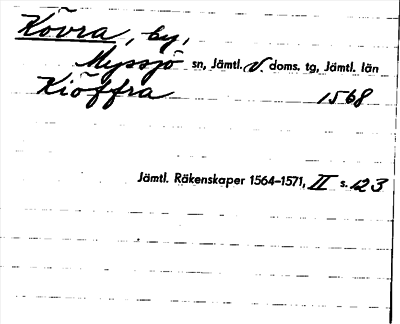 Kövra, by,
Myssjö sn, Jämtl. V. doms. tg, Jämtl. län
Kiöffra 1568
Jämtl. Räkenskaper 1564–1571, II s. 123